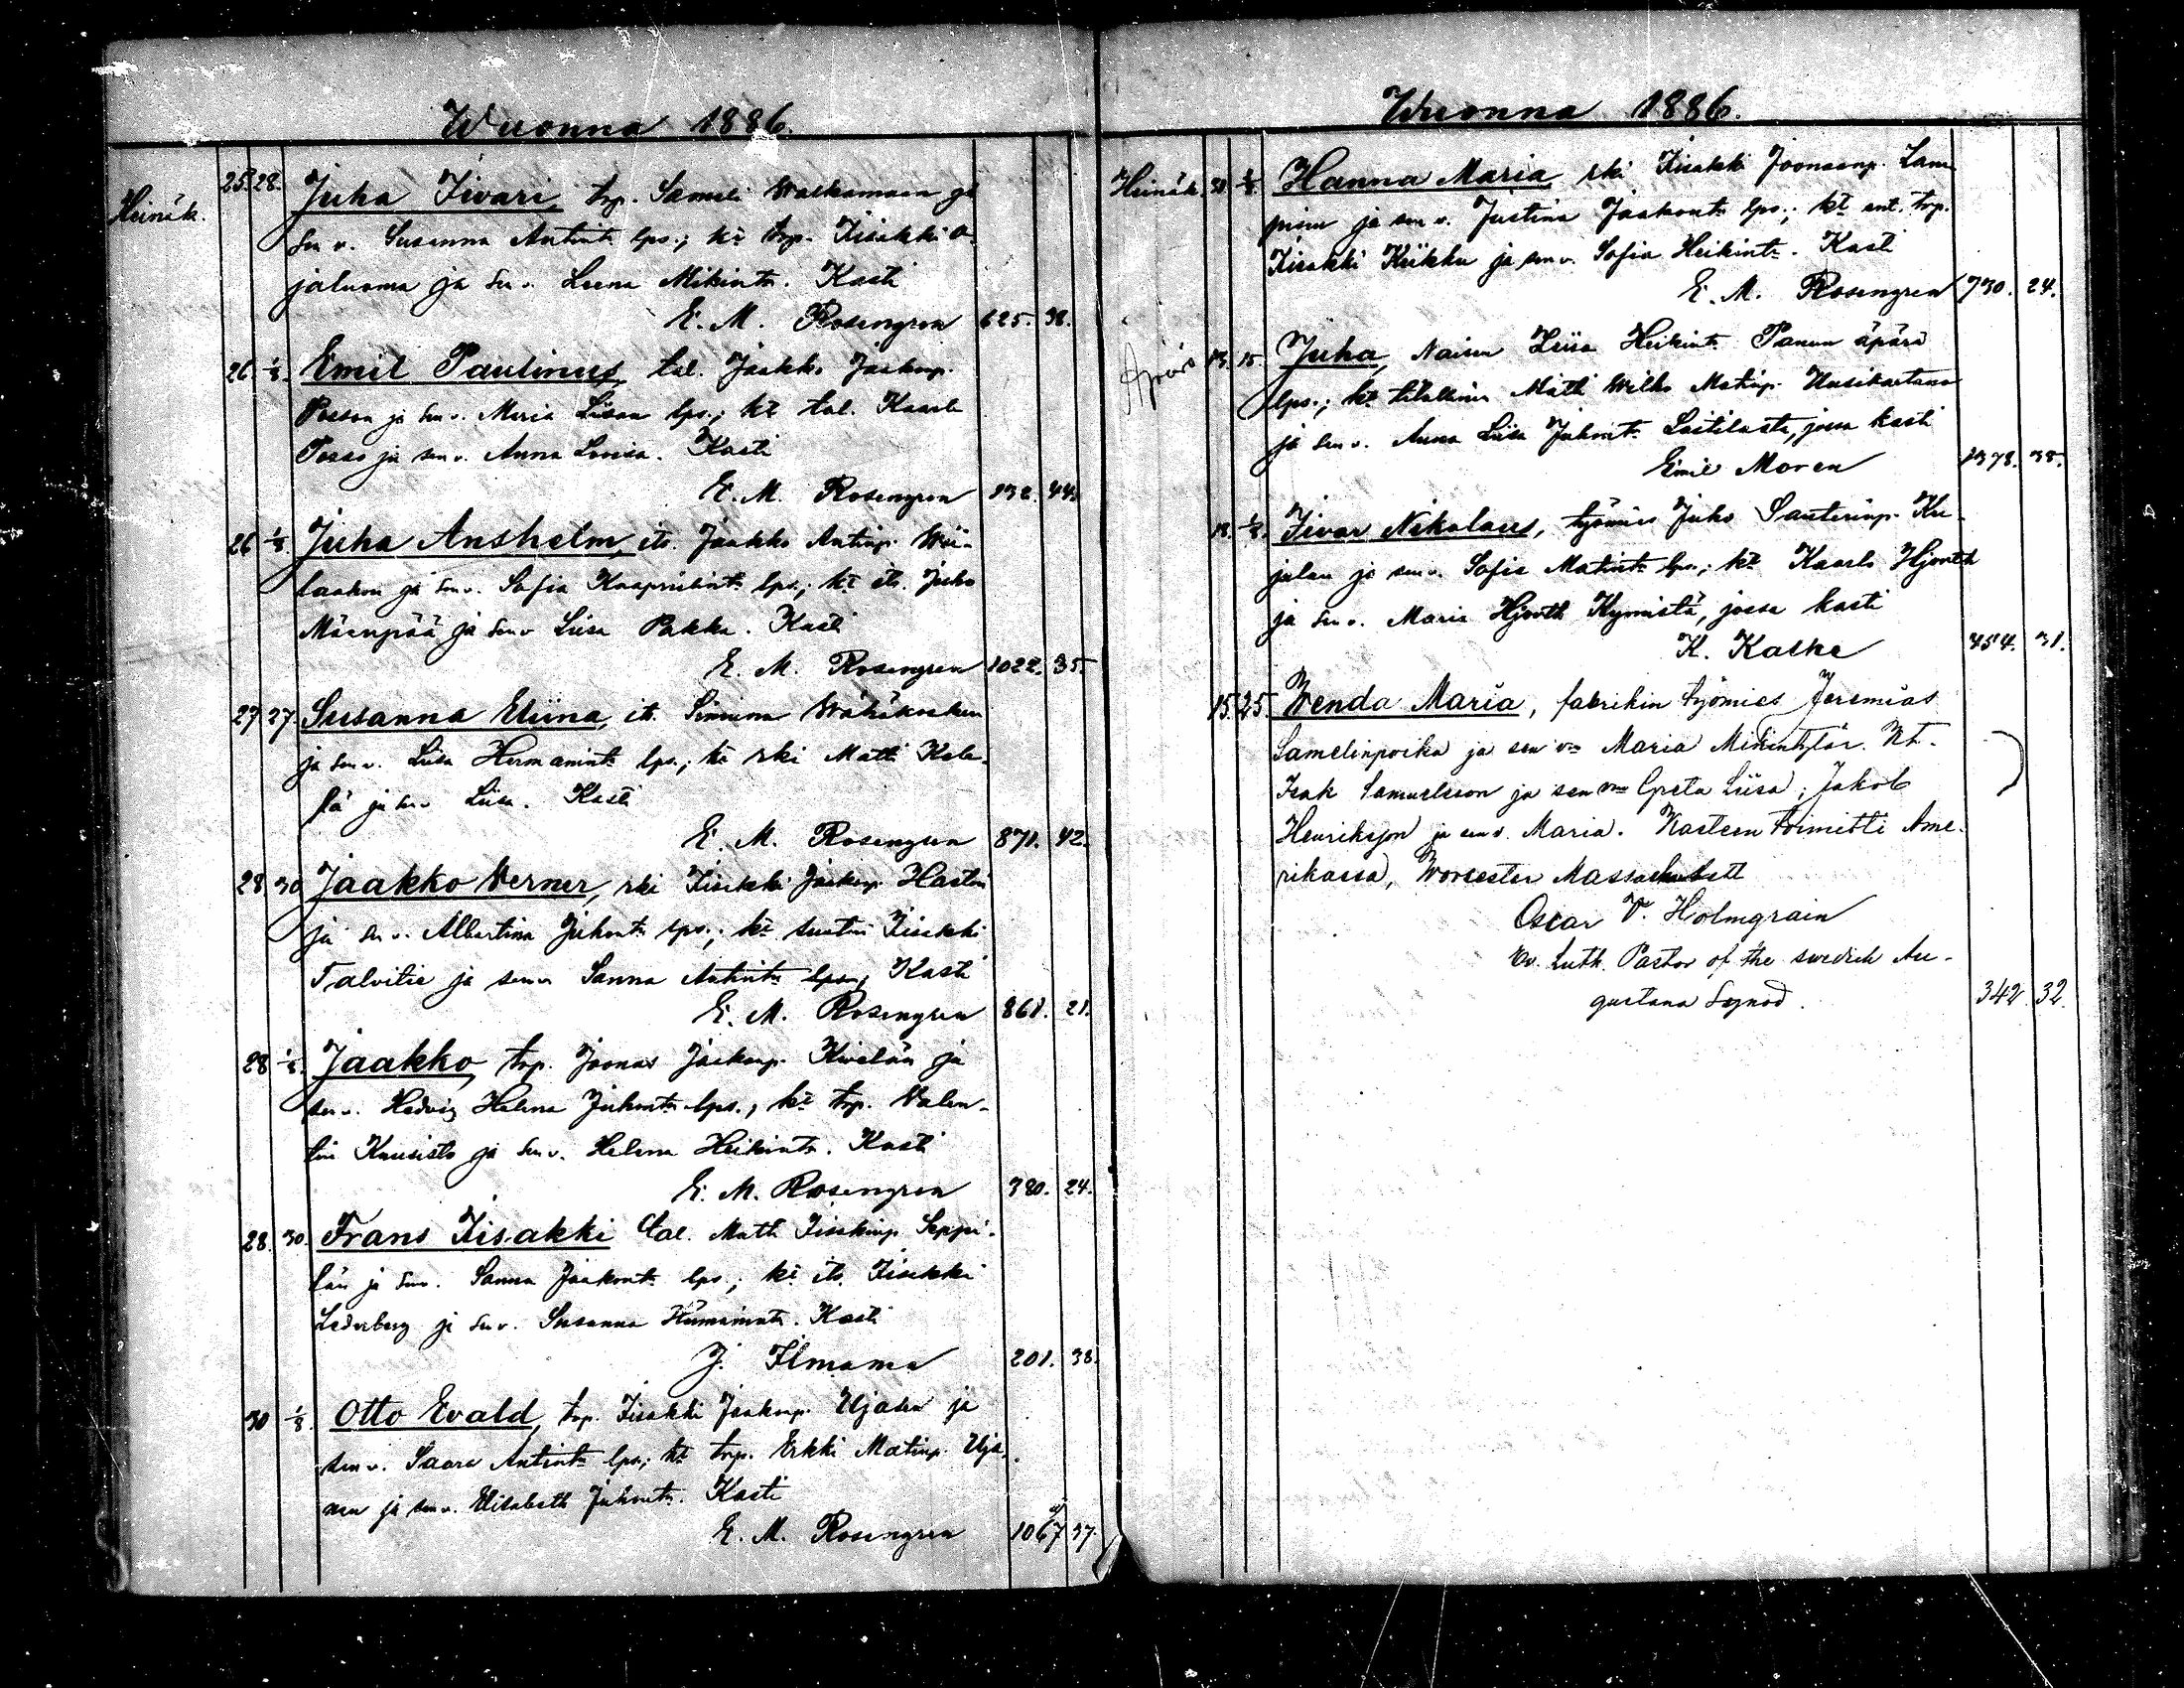 Wuonna 1886.
Heinäk. 25. 28. Juha Iivari, trp. Samuli Walkamaan ja
sen v. Susanna Antint. lps.; kt trp. Iisakki O-
jaluoma ja sen v. Leena Mikint. Kasti
E. M. Rosengren 625. 38.
26. 1/8. Emil Paulinus, tal. Jaakko Jaakonp.
ja sen v. Maria Liisan lps.; kt tal. Kaarle
ja sen v. Anna Lovisa. Kasti
E. M. Rosengren 132. 44.
26 1/8. Juha Anshelm, its. Jaakko Antinp. Wii-
ja sen v. Sofia lps.; kt its. Juho
Mäenpää ja sen v. Liisa Pakka. Kasti
E. M. Rosengren 1022. 35.
27 27. Susanna Eliina, its. Simuna Wähäkosken
ja sen v. Liisa Hermanint. lps.; kt rki Matti Kole-
ja sen v. Liisa. Kasti
E. M. Rosengren 871. 42.
28 30. Jaakko Verner, rki Iisakki Jaakonp.
ja sen v. Albertina Juhont. lps.; kt Iisakki
Talvitie ja sen v. Sanna Antint. Kasti
E. M. Rosengren 861. 21.
28 1/8. Jaakko, trp. Joonas Jaakonp. Kivelän ja
sen v. Hedvig Helena Juhont. lps.; kt trp. Valen-
tin Kuusisto ja sen v. Helena Heikint. Kasti
E. M. Rosengren 380. 24.
28. 30. Frans Iisakki, tal. Matti Iisakinp. Seppä-
län ja sen v. Sanna Jaakont. lps.; kt its. Iisakki
Lederberg ja sen v. Susanna Kasti
J. Ilmama 201. 38.
30 1/8. Otto Evald, trp. Iisakki Jaakonp. Ujasen ja
sen v. Saara Antint. lps.; kt trp. Erkki Matinp. Uja-
sen ja sen v. Elisabeth Juhont. Kasti
E. M. Rosengren 1067 37.
Wuonna 1886.
Heinäk. 1/8. Hanna Maria, rki Iisakki Joonaanp. Lam-
pinen ja sen v. Justina Jaakont. lps.; kt ent. trp.
Iisakki Kiikku ja sen v. Sofia Heikint. Kasti
E. M. Rosengren 730. 24.
13. 15. Juha, Naisen Liisa Heikint. Panun äpärä
lps.; kt tilallinen Matti Wilho Matinp. Uusikartano
ja sen v. Anna Liisa Juhont. Laitilasta, jossa kasti
Emil Moren 1378. 38.
18. Iivar Nikolaus, työmies Juho Santerinp. Ku-
jalan ja sen v. Sofia Matint. lps.; kt Kaarlo Hjorth
ja sen v. Maria Hjorth Kymistä, jossa kasti
K. Kaske 454. 31.
15. 25. Wenda Maria, fabrikin työmies Jeremias
Samelinpoika ja sen v:n Maria Mikintytär. Kt.
Isak Samuelsson ja sen v:n Greta Liisa; Jakob
Henriksson ja sen v. Maria. Kasteen toimitti Ame-
rikassa, Worcester Massachusett
Oscar V. Holmgrain
Ev. Luth. Pastor of the swedish Au-
gustana Synod. 342. 32.